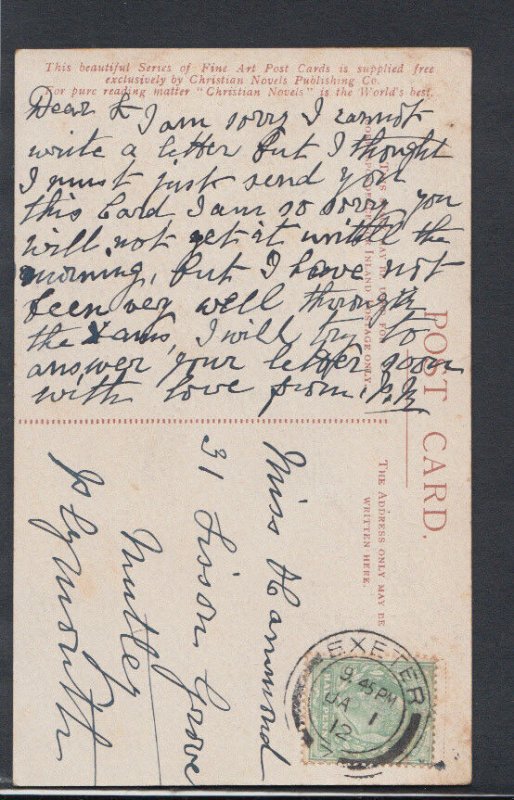 This beautiful Series of Fine Art Post Cards is supplied free
exclusively by Christian Novels Publishing Co.
For pure reading matter "Christian Novels" is the World's best.
Dear
I am sorry I cannot
write a letter but I thought
I must just send you
this Card I am so sorry you
will not get it untill the
morning, but I have not
been very well through
the Xams, I will try to
answer your letter soon
with love from,
POST CARD.
INLAND POSTAGE ONLY
THE ADDRESS ONLY MAY BE
WRITTEN HERE.
Miss Hammond
31 Lisson Grove
Mutley
Plymouth
EXETER
9.45 PM
JA 1
12